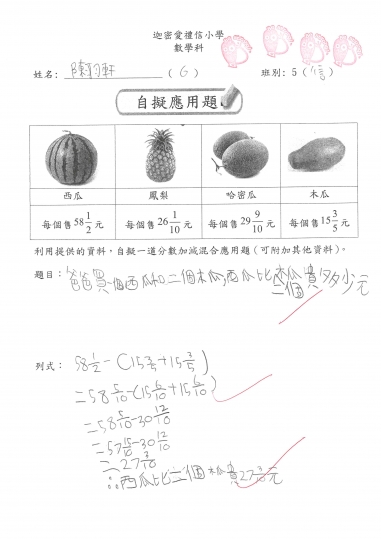 迦密愛禮信小學
數學科
姓名： 陳 軒 （ 6 ） 班別：5（信）
自擬應用題
西瓜 鳳梨 哈密瓜 木瓜
每個售58 1/2 元 每個售26 1/10 元 每個售29 9/10 元 每個售15 3/5 元
利用提供的資料，自擬一道分數加減混合應用題（可附加其他資料）。
題目： 爸爸買一個西瓜和二個木瓜，西瓜比二個木瓜貴多少元
列式： 58 1/2 - (15 3/5 + 15 3/5)
= 58 5/10 - (15 6/10 + 15 6/10)
= 58 5/10 - 30 12/10
= 57 15/10 - 30 12/10
= 27 3/10
∴西瓜比二個木瓜貴27 3/10元